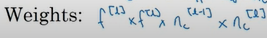 Weights: f^[l] × f^[l] × n_c^[l-1] × n_c^[l]